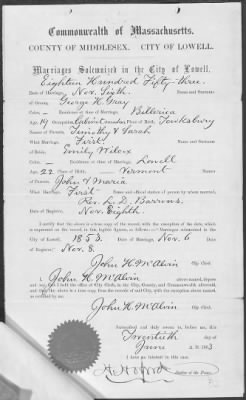 Commonwealth of Massachusetts.
COUNTY OF MIDDLESEX. CITY OF LOWELL.
Marriages Solemnized in the City of Lowell,
Eighteen Hundred Fifty three.
Date of Marriage, Nov. Sixth. Name and Surname
of Groom, George H. Gray
Color, – Residence at time of Marriage, Billerica
Age, 19 Occupation Place of Birth, Tewksbury
Names of Parents, Timothy & Sarah
What Marriage, First. Name and Surname
of Bride, Emily Wilcox
Color, – Residence at time of Marriage, Lowell
Age, 22 Place of Birth, Vermont
Names of Parents, John & Maria
What Marriage, First Name and official station of person by whom married,
Rev. L. D. Barrows.
Date of Register, Nov. Eighth.
I certify that the above is a true copy of the record, with the exception of the date, which
is expressed on the record in figures, as follows:
City of Lowell, 1853. Date of Marriage, Nov. 6
Date of Register, Nov. 8.
John H. McAlvin City Clerk.
I John H. McAlvin above named, depose
and say, that I hold the office of City Clerk, in the City, County, and Commonwealth aforesaid,
and that the above is a true copy from the records of said City, with the exception above named,
as certified by me.
John H. McAlvin
City Clerk.
Subscribed and duly sworn to, before me, this
Twentieth day of
June A. D. 1863
Justice of the Peace.